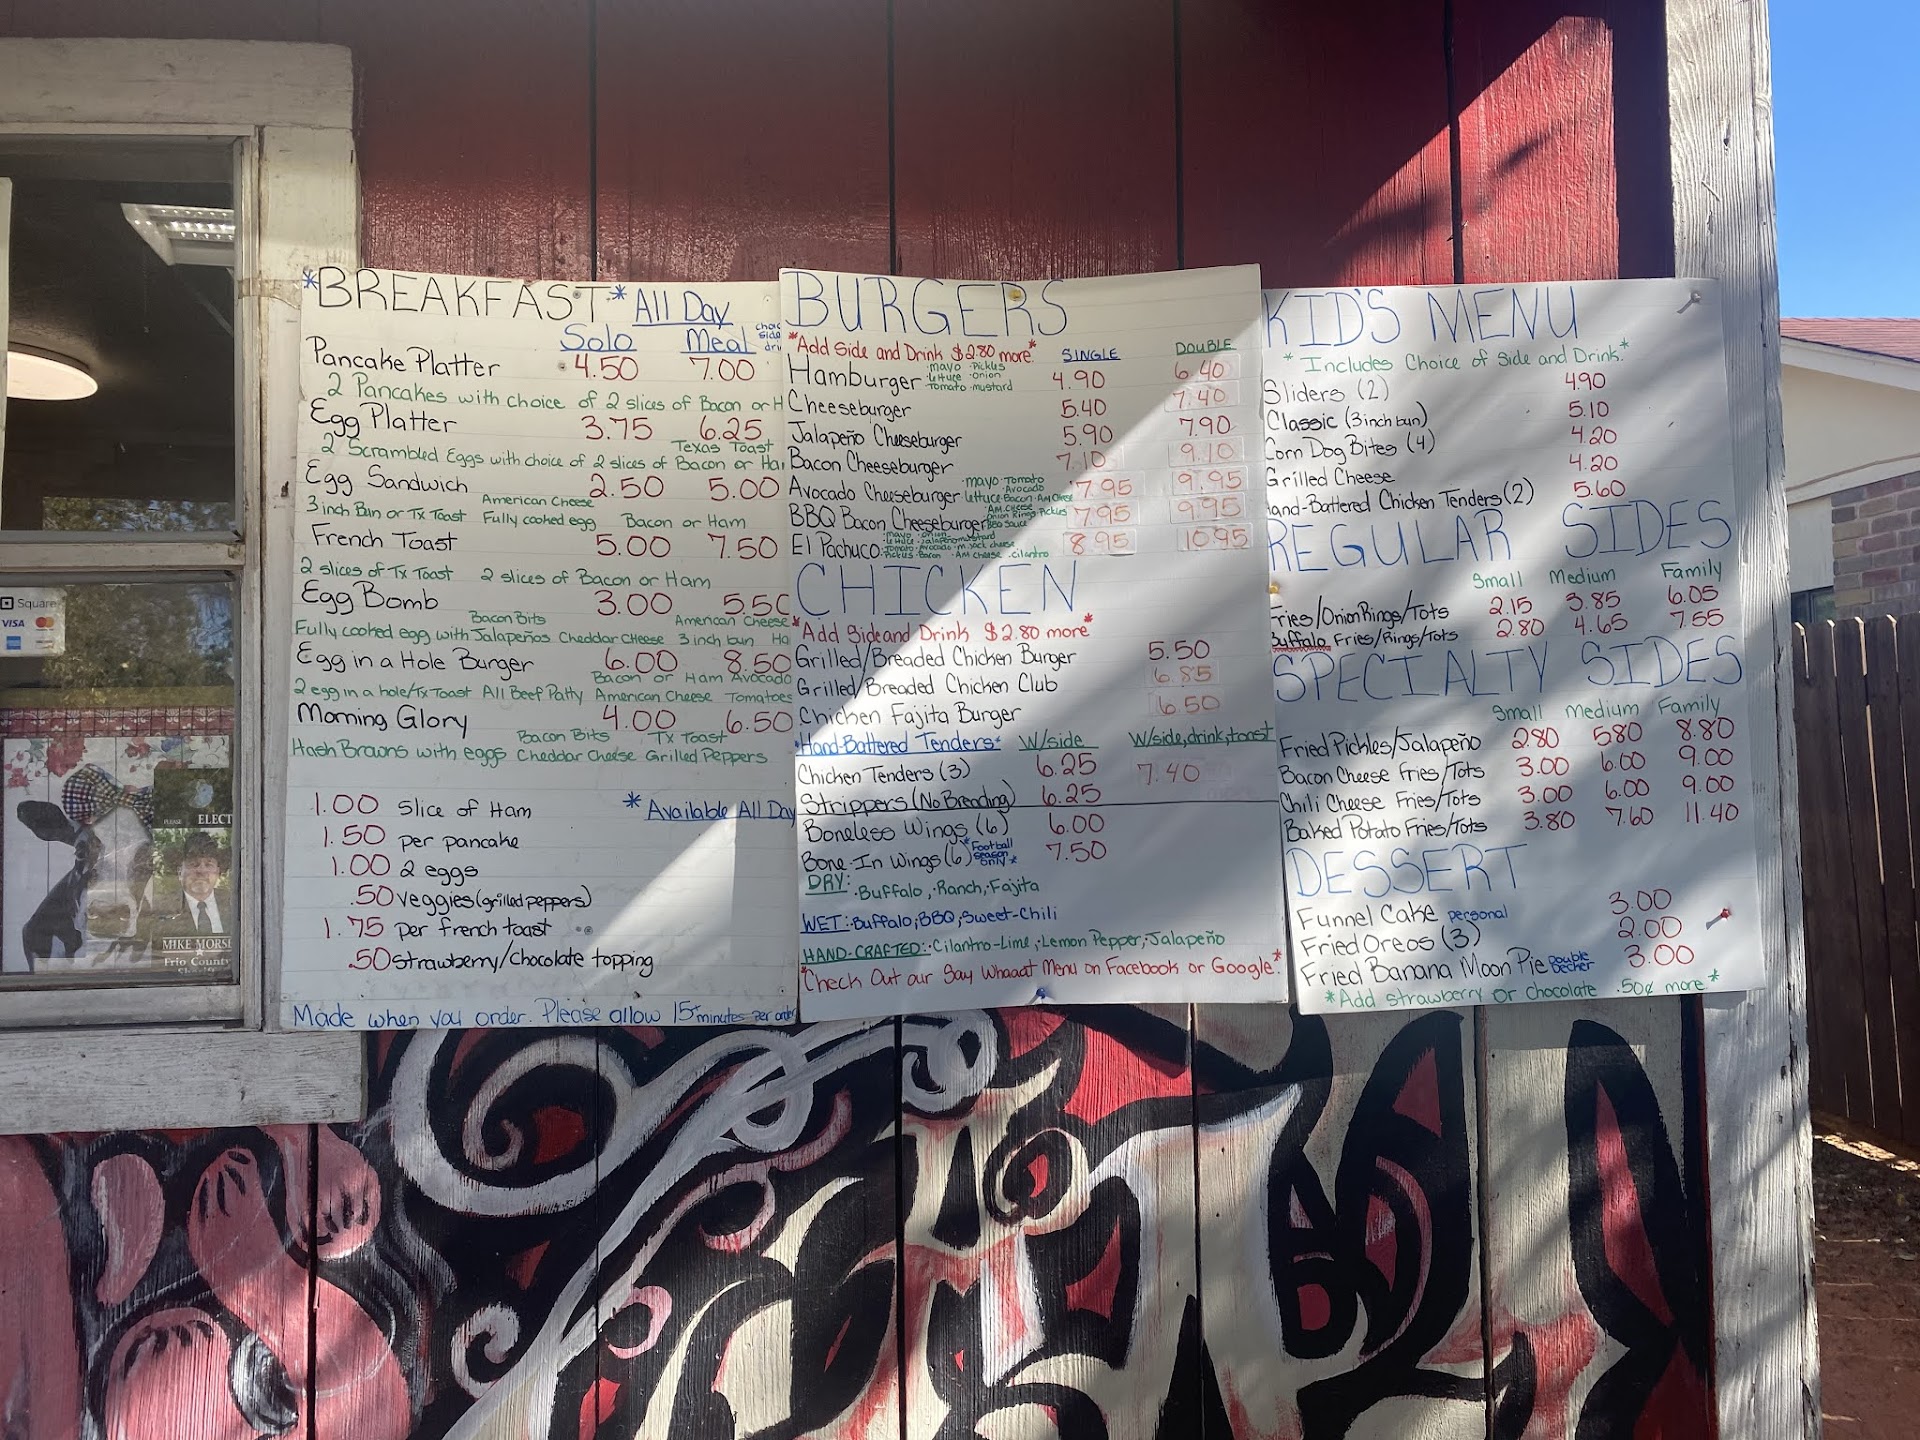 *BREAKFAST* All Day
Solo Meal
Pancake Platter 4.50 7.00
2 Pancakes with choice of 2 slices of Bacon or H
Egg Platter 3.75 6.25
Texas Toast
2 Scrambled Eggs with choice of 2 slices of Bacon or Ha
Egg Sandwich 2.50 5.00
American Cheese
3 inch Bun or Tx Toast Fully cooked egg Bacon or Ham
French Toast 5.00 7.50
2 slices of Tx Toast 2 slices of Bacon or Ham
Egg Bomb 3.00 5.50
Bacon Bits American Cheese
Fully cooked egg with Jalapeños Cheddar Cheese 3 inch bun Ha
Egg in a Hole Burger 6.00 8.50
Bacon or Ham Avocado
2 egg in a hole/Tx Toast All Beef Patty American Cheese Tomatoes
Morning Glory 4.00 6.50
Bacon Bits Tx Toast
Hash Browns with eggs Cheddar Cheese Grilled Peppers
1.00 Slice of Ham
* Available All Day
1.50 per pancake
1.00 2 eggs
.50 veggies (grilled peppers)
1.75 per french toast
.50 strawberry/chocolate topping
Made when you order. Please allow 15+ minutes per order
BURGERS
*Add Side and Drink $2.80 more.*
SINGLE DOUBLE
Hamburger 4.90 6.40
mayo pickles
lettuce onion
Tomato mustard
Cheeseburger 5.40 7.40
Jalapeño Cheeseburger 5.90 7.90
Bacon Cheeseburger 7.10 9.10
Avocado Cheeseburger 7.95 9.95
mayo Tomato
Avocado
lettuce Bacon Am Cheese
BBQ Bacon Cheeseburger 7.95 9.95
Am Cheese
Onion Rings Pickles
BBQ Sauce
El Pachuco 8.95 10.95
mayo onion
lettuce jalapeño mustard
Tomato Avocado m.jack cheese
Pickles Bacon Am Cheese cilantro
CHICKEN
*Add Side and Drink $2.80 more*
Grilled/Breaded Chicken Burger 5.50
Grilled/Breaded Chicken Club 6.85
Chicken Fajita Burger 6.50
*Hand-Battered Tenders* W/side W/side, drink, toast
Chicken Tenders (3) 6.25 7.40
Strippers (No Breading) 6.25
Boneless Wings (6) 6.00
Bone-In Wings (6) *Football season only* 7.50
DRY: Buffalo, Ranch, Fajita
WET: Buffalo, BBQ, Sweet-Chili
HAND-CRAFTED: Cilantro-Lime, Lemon Pepper, Jalapeño
*Check Out our Say Whaaat Menu on Facebook or Google.*
KID'S MENU
*Includes Choice of Side and Drink.*
Sliders (2) 4.90
Classic (3 inch bun) 5.10
Corn Dog Bites (4) 4.20
Grilled Cheese 4.20
Hand-Battered Chicken Tenders (2) 5.60
REGULAR SIDES
Small Medium Family
Fries/Onion Rings/Tots 2.15 3.85 6.05
Buffalo Fries/Rings/Tots 2.80 4.65 7.55
SPECIALTY SIDES
Small Medium Family
Fried Pickles/Jalapeño 2.80 5.80 8.80
Bacon Cheese Fries/Tots 3.00 6.00 9.00
Chili Cheese Fries/Tots 3.00 6.00 9.00
Baked Potato Fries/Tots 3.80 7.60 11.40
DESSERT
Funnel Cake personal 3.00
Fried Oreos (3) 2.00
Fried Banana Moon Pie Double Decker 3.00
*Add strawberry or chocolate .50¢ more.*
Square
VISA
PLEASE ELECT
MIKE MORS
Frio County